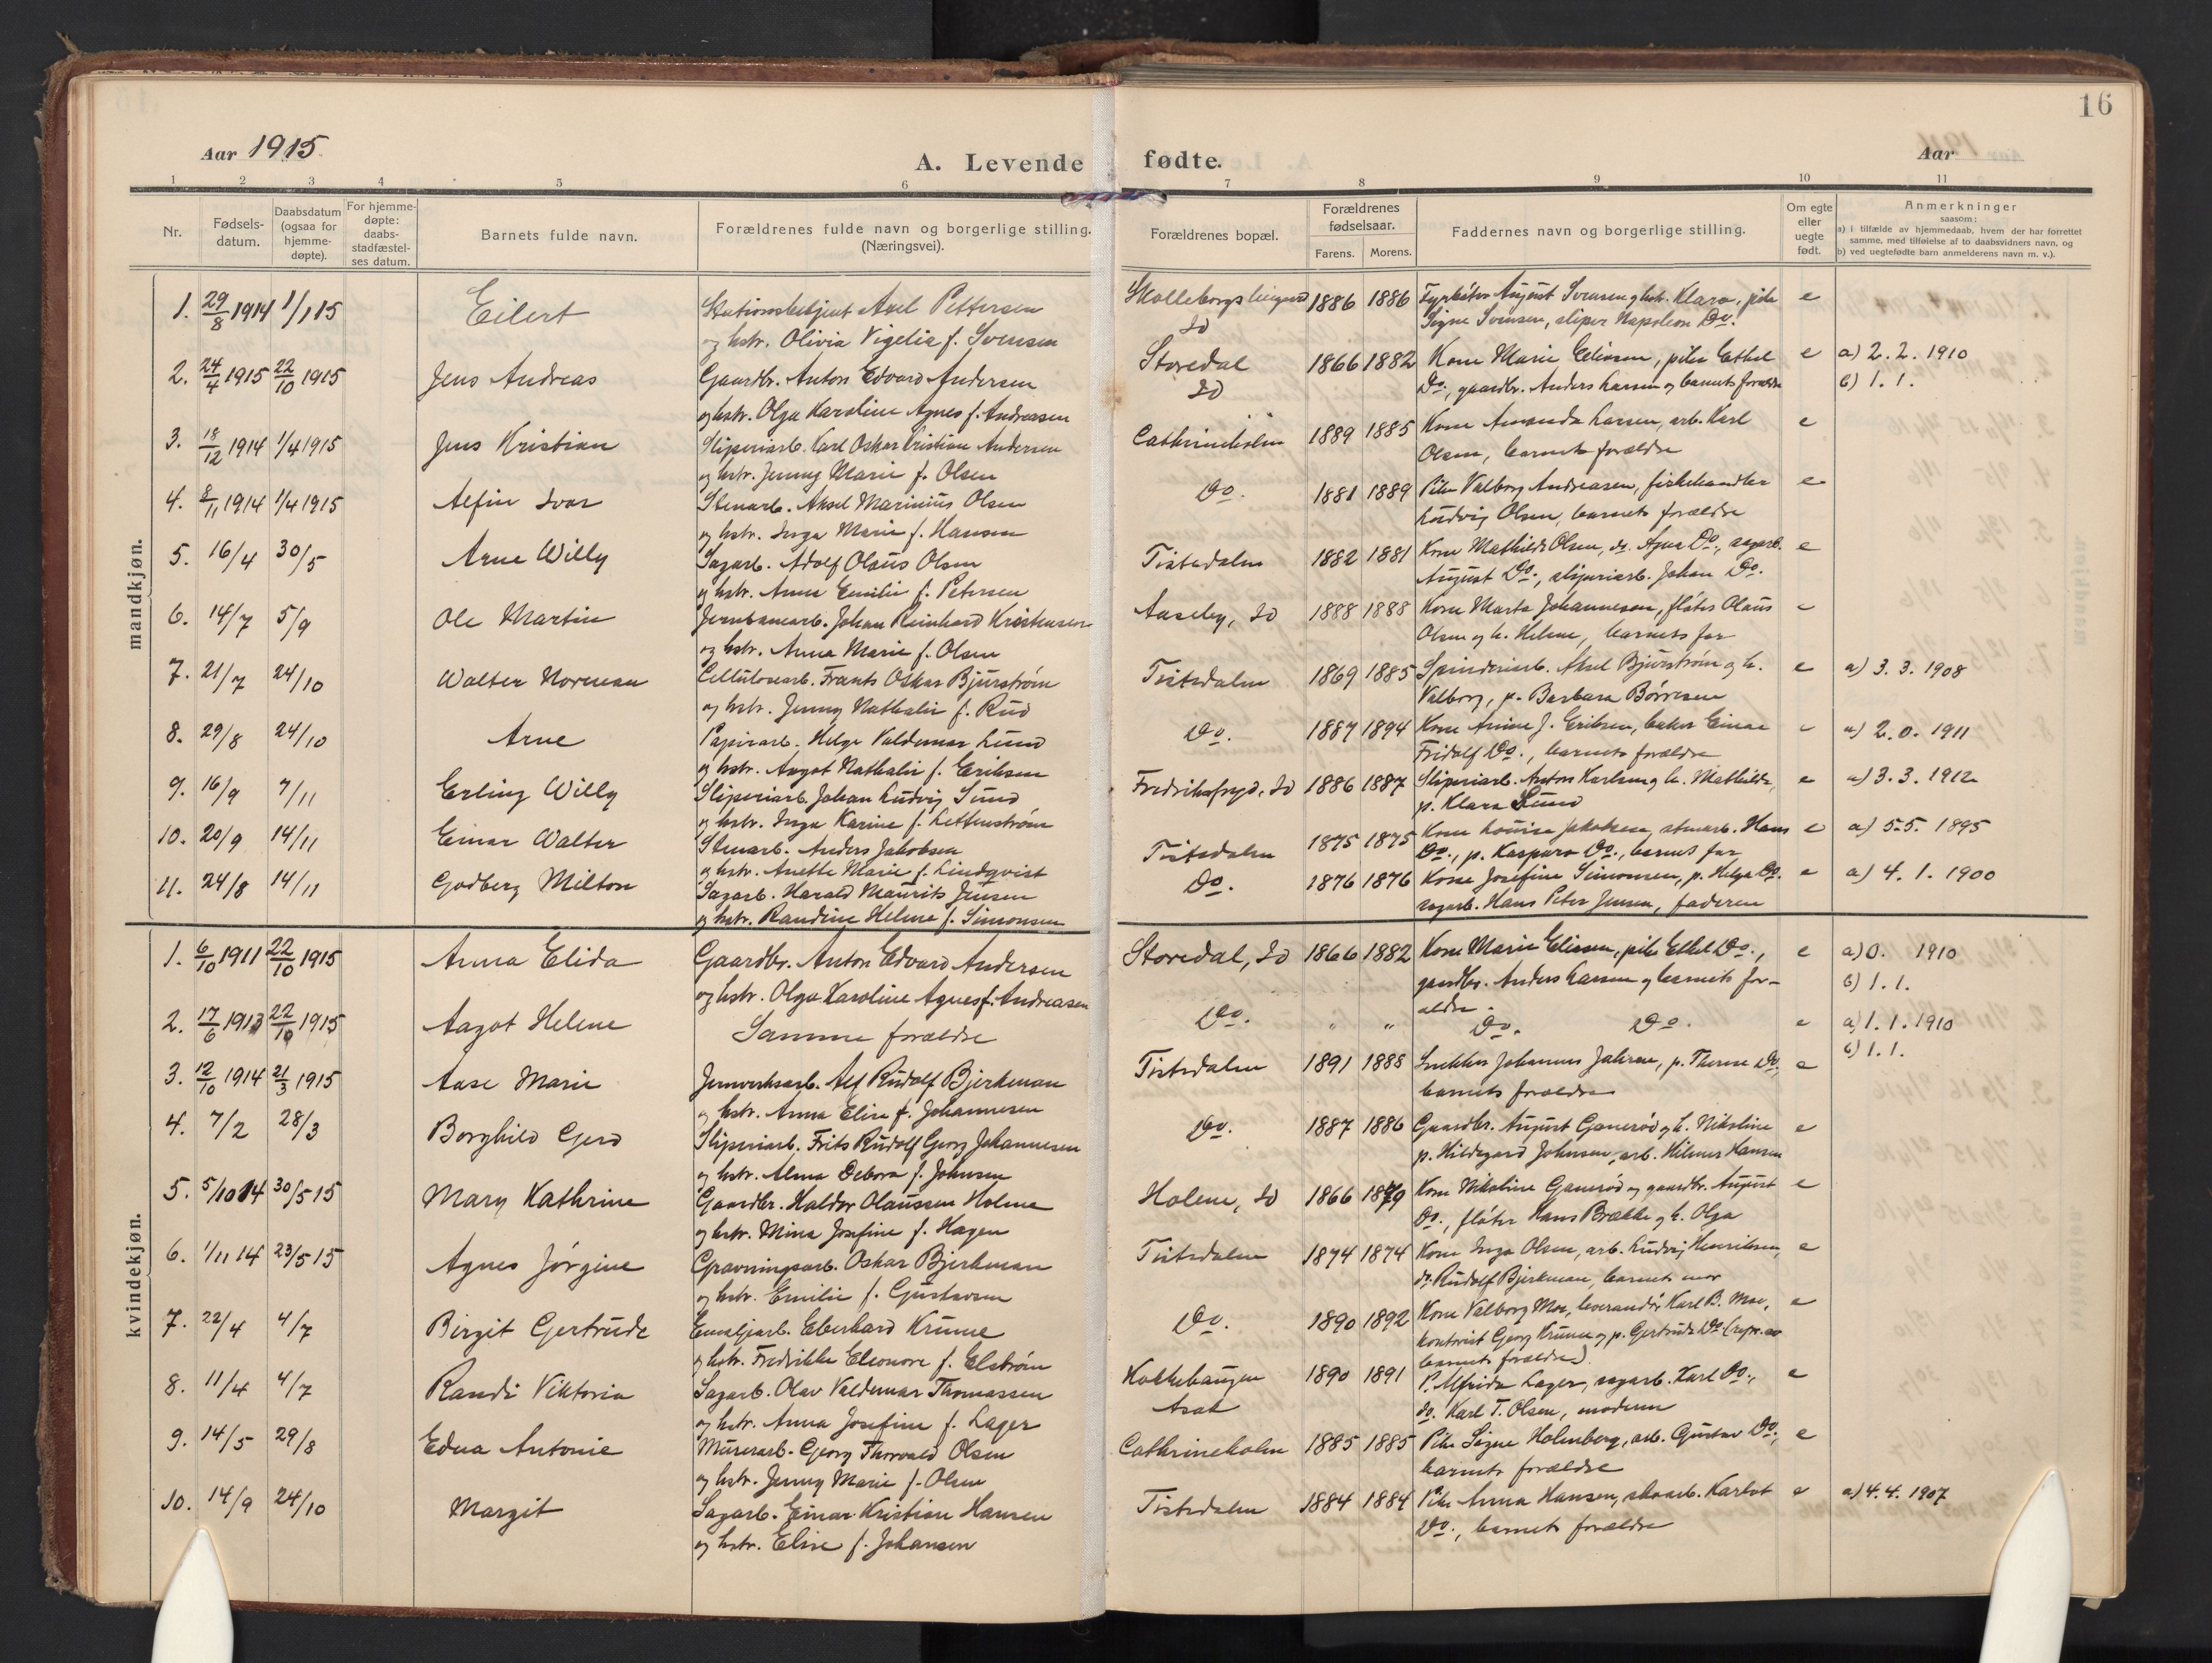 16
Aar 1915
A. Levende fødte.
Aar
1 2 3 4 5 6 7 8 9 10 11
Nr.
Fødsels-
datum.
Daabsdatum
(ogsaa for
hjemme-
døpte).
For hjemme-
døpte:
daabs-
stadfæstel-
ses datum.
Barnets fulde navn.
Forældrenes fulde navn og borgerlige stilling.
(Næringsvei).
Forældrenes bopæl.
Forældrenes
fødselsaar.
Farens. Morens.
Faddernes navn og borgerlige stilling.
Om egte
eller
uegte
født.
Anmerkninger
saasom:
a) i tilfælde av hjemmedaab, hvem der har forrettet
samme, med tilføielse af to daabsvidners navn, og
b) ved uegtefødte barn anmelderens navn m. v.).
mandkjøn.
1. 29/8 1914 1/1 15 Eilert Stationsbetjent Axel Pettersen 1886 1886 Fyrbøter August Svensen og hstr. Klara, pike e
og hstr. Olivia Vigelia f. Svensen Id Signe Svensen, sliper Napoleon Do.
2. 24/4 1915 22/10 1915 Jens Andreas Gaardbr. Anton Edvard Andersen Storedal 1866 1882 Kone Marie Eliassen, pike Ethel e a) 2. 2. 1910
og hstr. Olga Karoline Agnes f. Andreasen Id Do., gaardbr. Anders Larsen og barnets forældre b) 1. 1.
3. 18/12 1914 1/4 1915 Jens Kristian Sliperiarb. Karl Oskar Kristian Andersen Cathrineholm 1889 1885 Kone Amanda Larsen, arb. Karl e
og hstr. Jenny Marie f. Olsen Olsen, barnets forældre
4. 8/11 1914 1/4 1915 Alfin Ivar Stenarb. Aksel Marinius Olsen Do. 1881 1889 Pike Valborg Andreasen, fiskehandler e
og hstr. Inga Marie f. Hansen Ludvig Olsen, barnets forældre
5. 16/4 30/5 Arne Willy Sagarb. Adolf Olaus Olsen Tistedalen 1882 1881 Kone Mathilde Olsen, do. Agna Do., sagarb. e
og hstr. Anna Emilie f. Petersen August Do., sliperiarb. Johan Do.
6. 14/7 5/9 Ole Martin Jernbanearb. Johan Reinhard Kristensen Aaseby, Id 1888 1888 Kone Marta Johannesen, fløter Olaus e
og hstr. Anna Marie f. Olsen Olsen og h. Helene, barnets far
7. 21/7 24/10 Walter Norman Cellulosearb. Frants Oskar Bjurstrøm Tistedalen 1869 1885 Spinderiarb. Aksel Bjurstrøm og h. e a) 3. 3. 1908
og hstr. Jenny Nathalie f. Rud Valborg, p. Barbara Børresen
8. 29/8 24/10 Arne Papirarb. Helge Valdemar Lund Do. 1887 1894 Kone Anine J. Eriksen, baker Einar e a) 2. 0. 1911
og hstr. Aagot Nathalie f. Eriksen Fridolf Do., barnets forældre
9. 16/9 7/11 Erling Willy Sliperiarb. Johan Ludvig Lund Fredriksfryd, Id 1886 1887 Sliperiarb. Anton Karlsen og h. Mathilde, e a) 3. 3. 1912
og hstr. Inga Karine f. Lettenstrøm p. Klara Lund
10. 20/9 14/11 Einar Walter Stenarb. Anders Jakobsen Tistedalen 1875 1875 Kone Louise Jakobsen, stenarb. Hans e a) 5. 5. 1895
og hstr. Anette Marie f. Lindqvist Do., p. Kaspara Do., barnets far
11. 24/8 14/11 Godberg Milton Sagarb. Harald Maurits Jensen Do. 1876 1876 Kone Josefine Simonsen, p. Helga Do. e a) 4. 1. 1900
og hstr. Randine Helene f. Simonsen sagarb. Hans Peter Jensen, faderen
kvindekjøn.
1. 6/10 1911 22/10 1915 Anna Elida Gaardbr. Anton Edvard Andersen Storedal, Id 1866 1882 Kone Marie Eliassen, pike Ethel Do., e a) 0. 1910
og hstr. Olga Karoline Agnes f. Andreasen gaardbr. Anders Larsen og barnets for- b) 1. 1.
ældre.
2. 17/6 1913 22/10 1915 Aagot Helene Samme forældre Do. " " Do. Do. e a) 1. 1. 1910
b) 1. 1.
3. 12/10 1914 21/3 1915 Aase Marie Jernverksarb. Alf Rudolf Bjerkman Tistedalen 1891 1888 Snekker Johannes Jahren, p. Therese Do., e
og hstr. Anna Elise f. Johannesen barnets forældre
4. 7/2 28/3 Borghild Gerd Sliperiarb. Frits Rudolf Georg Johannesen Do. 1887 1886 Gaardbr. August Ganerød og h. Nikoline e
og hstr. Alma Debora f. Johnsen p. Hildegard Johnsen, arb. Hilmer Hansen
5. 5/10 14 30/5 15 Mary Kathrine Gaardbr. Haldor Olaussen Holene Holene, Id 1866 1879 Kone Nikoline Ganerød og gaardbr. August e
og hstr. Mina Josefine f. Hagen Do., fløter Hans Brække og h. Olga
6. 1/11 14 23/5 15 Agnes Jørgine Gravningsarb. Oskar Bjerkman Tistedalen 1874 1874 Kone Inga Olsen, arb. Ludvig Henriksen, e
og hstr. Emilie f. Gustavsen do. Rudolf Bjerkman, barnets mor
7. 22/4 4/7 Birgit Gertrude Emaljearb. Eberhard Krune Do. 1890 1892 Kone Valborg Moe, leverandør Karl B. Moe, e
og hstr. Fredrikke Eleonore f. Elstrøm kontorist Georg Krune og p. Gertrude Do. (repr. av
barnets forældre).
8. 11/4 4/7 Randi Viktoria Sagarb. Olav Valdemar Thomassen Kokkehaugen 1890 1891 P. Alfrida Lager, sagarb. Karl Do., e
og hstr. Anna Josefine f. Lager Asak do. Karl T. Olsen, moderen
9. 14/5 29/8 Edna Antonie Murerarb. Georg Thorvald Olsen Cathrineholm 1885 1885 Pike Signe Holmberg, arb. Gustav Do., e
og hstr. Jenny Marie f. Olsen barnets forældre
10. 14/9 24/10 Margit Sagarb. Einar Kristian Hansen Tistedalen 1884 1884 Pike Anna Hansen, skoarb. Karlot e a) 4. 4. 1907
og hstr. Elise f. Johansen Do., barnets forældre